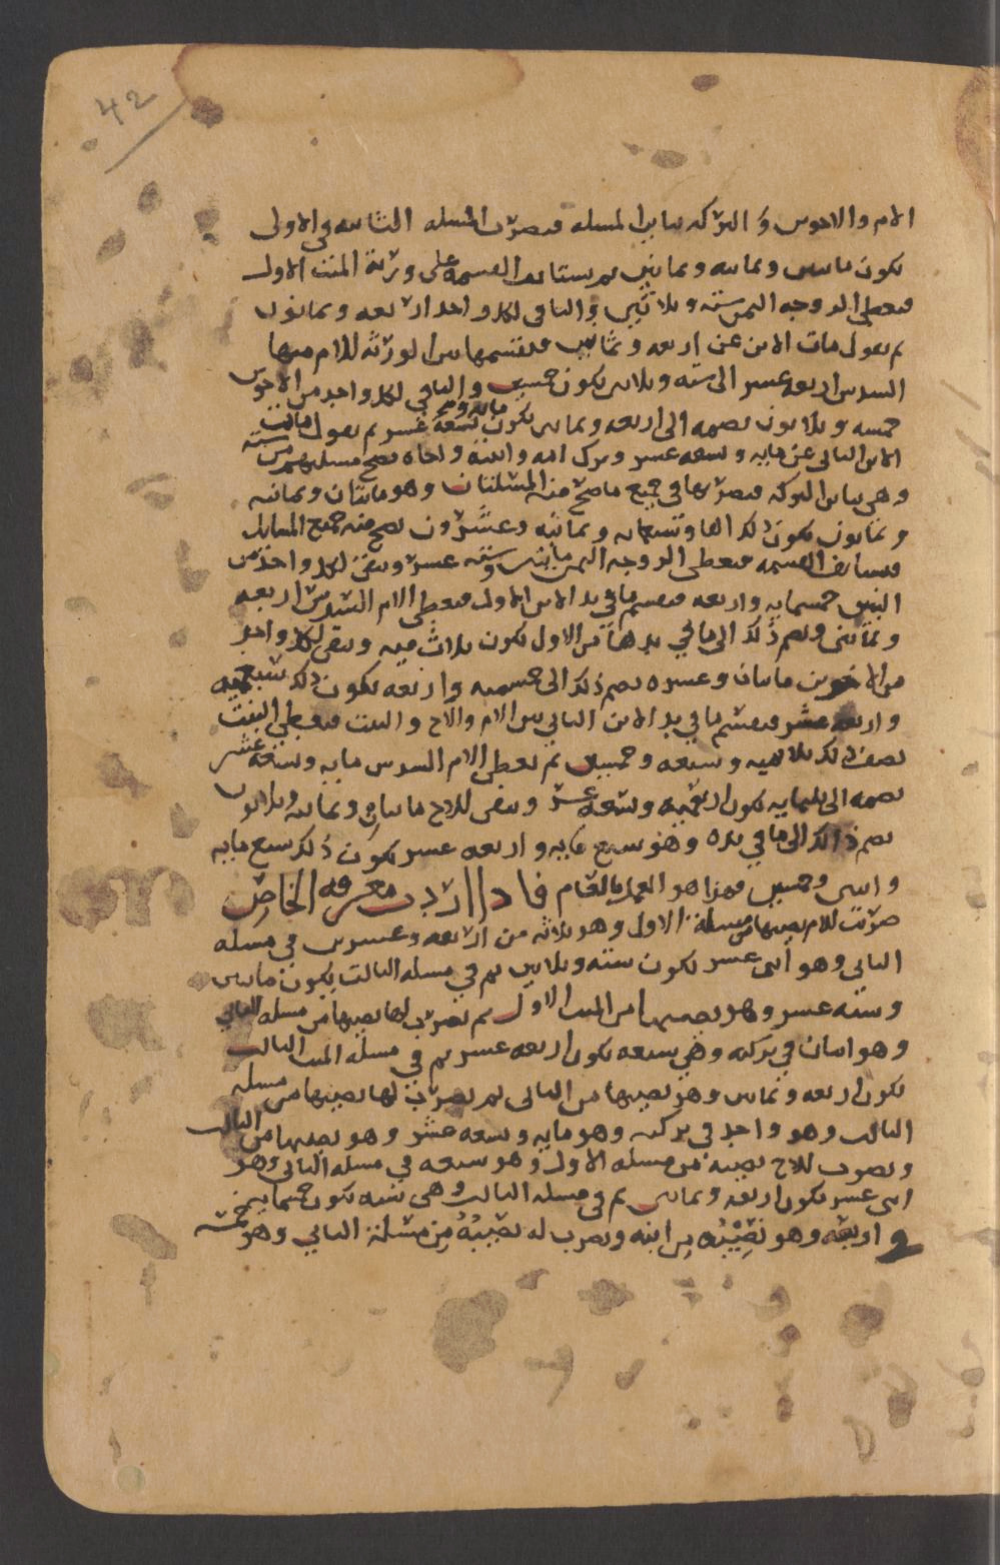 42
الام والاخوين والتركه تباين المسله فتضرب المسله الثانيه في الاولى
تكون مايتين وثمانيه وثمانين ثم يستانف القسمه على ورثة الميت الاول
فتعطي الزوجه الثمن سته وثلاثين والباقي لكل واحد اربعه وثمانون
ثم تقول مات الابن عن اربعه وثمانين فتقسمها بين الورثه للام منها
السدس اربعه عشر الى سته وثلاثين تكون خمسين والباقي لكل واحد من الاخوين
خمسه وثلاثون تضمه الى اربعه وثمانين تكون مايه وتسعة عشر ثم تقول مات
الابن الثاني عن مايه وتسعه عشر وترك امه وابنته واخاه تصح مسلتهم من سته
وهي تباين التركه فتضربها في جميع ما صحت منه المسئلتان وهو مايتان وثمانيه
وثمانون تكون ذلك الفا وتسعمايه وثمانيه وعشرون تصح منه جميع المسايل
فتستانف القسمه فتعطي الزوجه الثمن مايتين وسته عشر ويبقى لكل واحد من
البنين خمسمايه واربعه فتقسم ما في يد الابن الاول فتعطي الام السدس اربعه
وثمانين وتضم ذلك الى ما في يدها من الاول تكون ثلاث ميه ويبقى لكل واحد
من الاخوين مايتان وعشره تضم ذلك الى خمسميه واربعه تكون ذلك سبعميه
واربعه عشر فتقسم ما في يد الابن الثاني بين الام والاخ والبنت فتعطي البنت
نصف ذلك ثلاثميه وسبعه وخمسين ثم تعطي الام السدس مايه وتسعه عشر
تضمه الى ثلثمايه تكون اربعميه وتسعه عشر ويبقى للاخ مايتان وثمانيه وثلاثون
تضم ذالك الى ما في يده وهو سبع مايه واربعه عشر تكون ذلك تسع مايه
واثنين وخمسين فهذا هو العمل بالتمام فاذا اردت معرفه الخاص
ضربت للام نصيبها من مسلة الاول وهو ثلاثه من اربعه وعشرين في مسله
الثاني وهو اثنى عشر تكون سته وثلاثين ثم في مسله الثالث يكون مايتين
وسته عشر وهو نصيبها من الميت الاول ثم تضرب لها نصيبها من مسله الثاني
وهو اثنان في تركته وهي سبعه تكون اربعه عشر ثم في مسلة الميت الثالث
تكون اربعه وثمانين وهو نصيبها من الثاني ثم تضرب لها نصيبها من مسله
الثالث وهو واحد في تركته وهو مايه وتسعه عشر وهو نصيبها من الثالث
وتضرب للاخ نصيبه من مسله الاول وهو سبعه في مسله الثاني وهو
اثنى عشر تكون اربعه وثمانين ثم في مسله الثالث وهي سته تكون خمسمايه
واربعه وهو نصيبه من ابيه وتضرب له نصيبه من مسئلة الثاني وهو خمسه